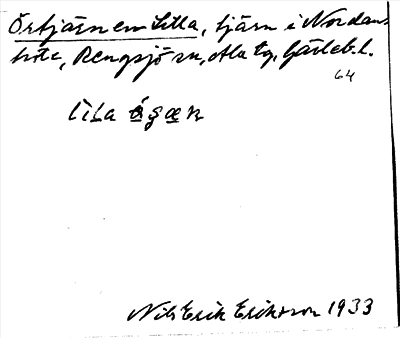 Örtjärnen Lilla, tjärn i Nordans-
höle, Rengsjö sn, Ala tg, Gävleb. l.
64
Nils Erik Eriksson 1933